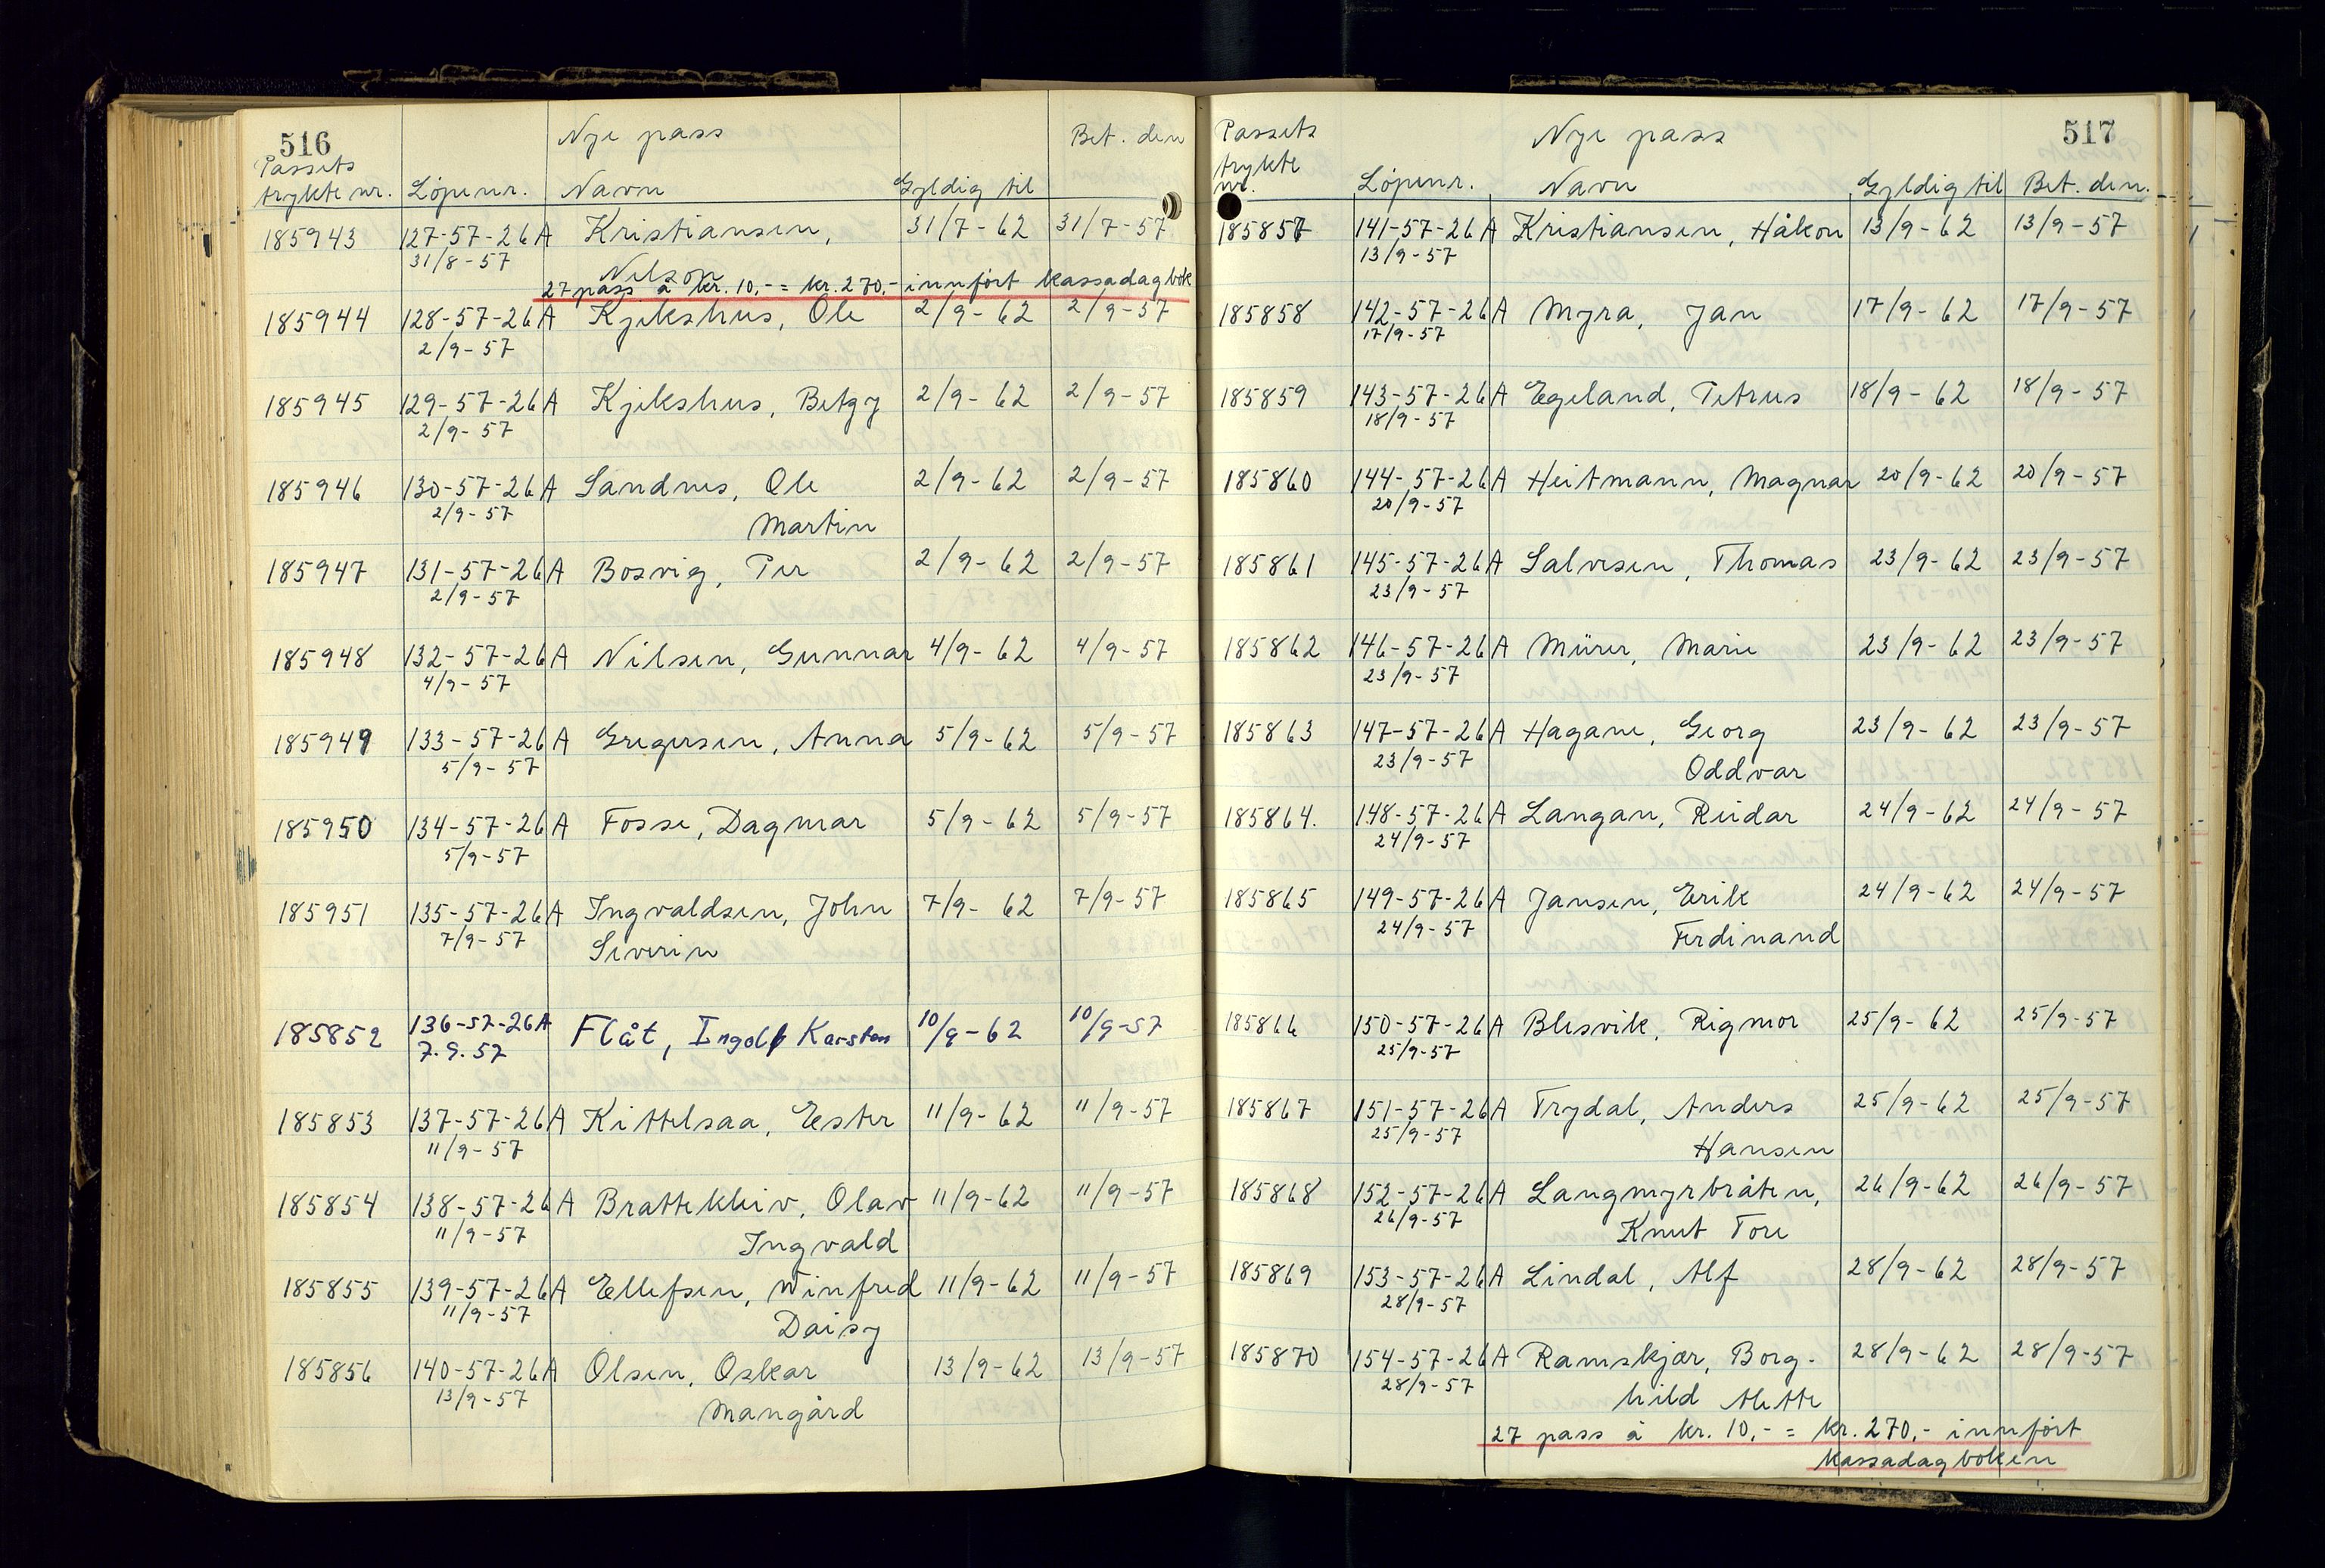 516
Nye pass
Bet. den
Passets
trykte nr. Löpenr. Navn Gyldig til
185943 127-57-26A Kristiansen, 31/7-62 31/7-57
31/8-57 Nilson
27 pass à kr. 10,- = kr. 270,- innført kassadagbok
185944 128-57-26A Kjekshus, Ole 2/9-62 2/9-57
2/9-57
185945 129-57-26A Kjekshus, Betzy 2/9-62 2/9-57
2/9-57
185946 130-57-26A Sandnes, Ole 2/9-62 2/9-57
2/9-57 Martin
185947 131-57-26A Bosvig, Per 2/9-62 2/9-57
2/9-57
185948 132-57-26A Nilsen, Gunnar 4/9-62 4/9-57
4/9-57
185949 133-57-26A Gregersen, Anna 5/9-62 5/9-57
5/9-57
185950 134-57-26A Fosse, Dagmar 5/9-62 5/9-57
5/9-57
185951 135-57-26A Ingvaldsen, John 7/9-62 7/9-57
7/9-57 Severin
185852 136-57-26A Flåt, Ingolf Karsten 10/9-62 10/9-57
7.9.57
185853 137-57-26A Kittelsaa, Ester 11/9-62 11/9-57
11/9-57
185854 138-57-26A Brattekleiv, Olav 11/9-62 11/9-57
11/9-57 Ingvald
185855 139-57-26A Ellefsen, Winfred 11/9-62 11/9-57
11/9-57 Daisy
185856 140-57-26A Olsen, Oskar 13/9-62 13/9-57
13/9-57 Mangård
517
Passets Nye pass
trykte
nr. Löpenr. Navn Gyldig til Bet. den.
185857 141-57-26A Kristiansen, Håkon 13/9-62 13/9-57
13/9-57
185858 142-57-26A Myra, Jan 17/9-62 17/9-57
17/9-57
185859 143-57-26A Egeland, Petrus 18/9-62 18/9-57
18/9-57
185860 144-57-26A Heitmann, Magnar 20/9-62 20/9-57
20/9-57
185861 145-57-26A Salvesen, Thomas 23/9-62 23/9-57
23/9-57
185862 146-57-26A Mürer, Marie 23/9-62 23/9-57
23/9-57
185863 147-57-26A Hagane, Georg 23/9-62 23/9-57
23/9-57 Oddvar
185864. 148-57-26A Langan, Reidar 24/9-62 24/9-57
24/9-57
185865 149-57-26A Jansen, Erik 24/9-62 24/9-57
24/9-57 Ferdinand
185866 150-57-26A Blesvik, Rigmor 25/9-62 25/9-57
25/9-57
185867 151-57-26A Trydal, Anders 25/9-62 25/9-57
25/9-57 Hansen
185868 152-57-26A Langmyrbråten, 26/9-62 26/9-57
26/9-57 Knut Tore
185869 153-57-26A Lindal, Alf 28/9-62 28/9-57
28/9-57
185870 154-57-26A Ramskjær, Borg- 28/9-62 28/9-57
28/9-57 hild Alette
27 pass à kr. 10,- = kr. 270,- innført
kassadagboken